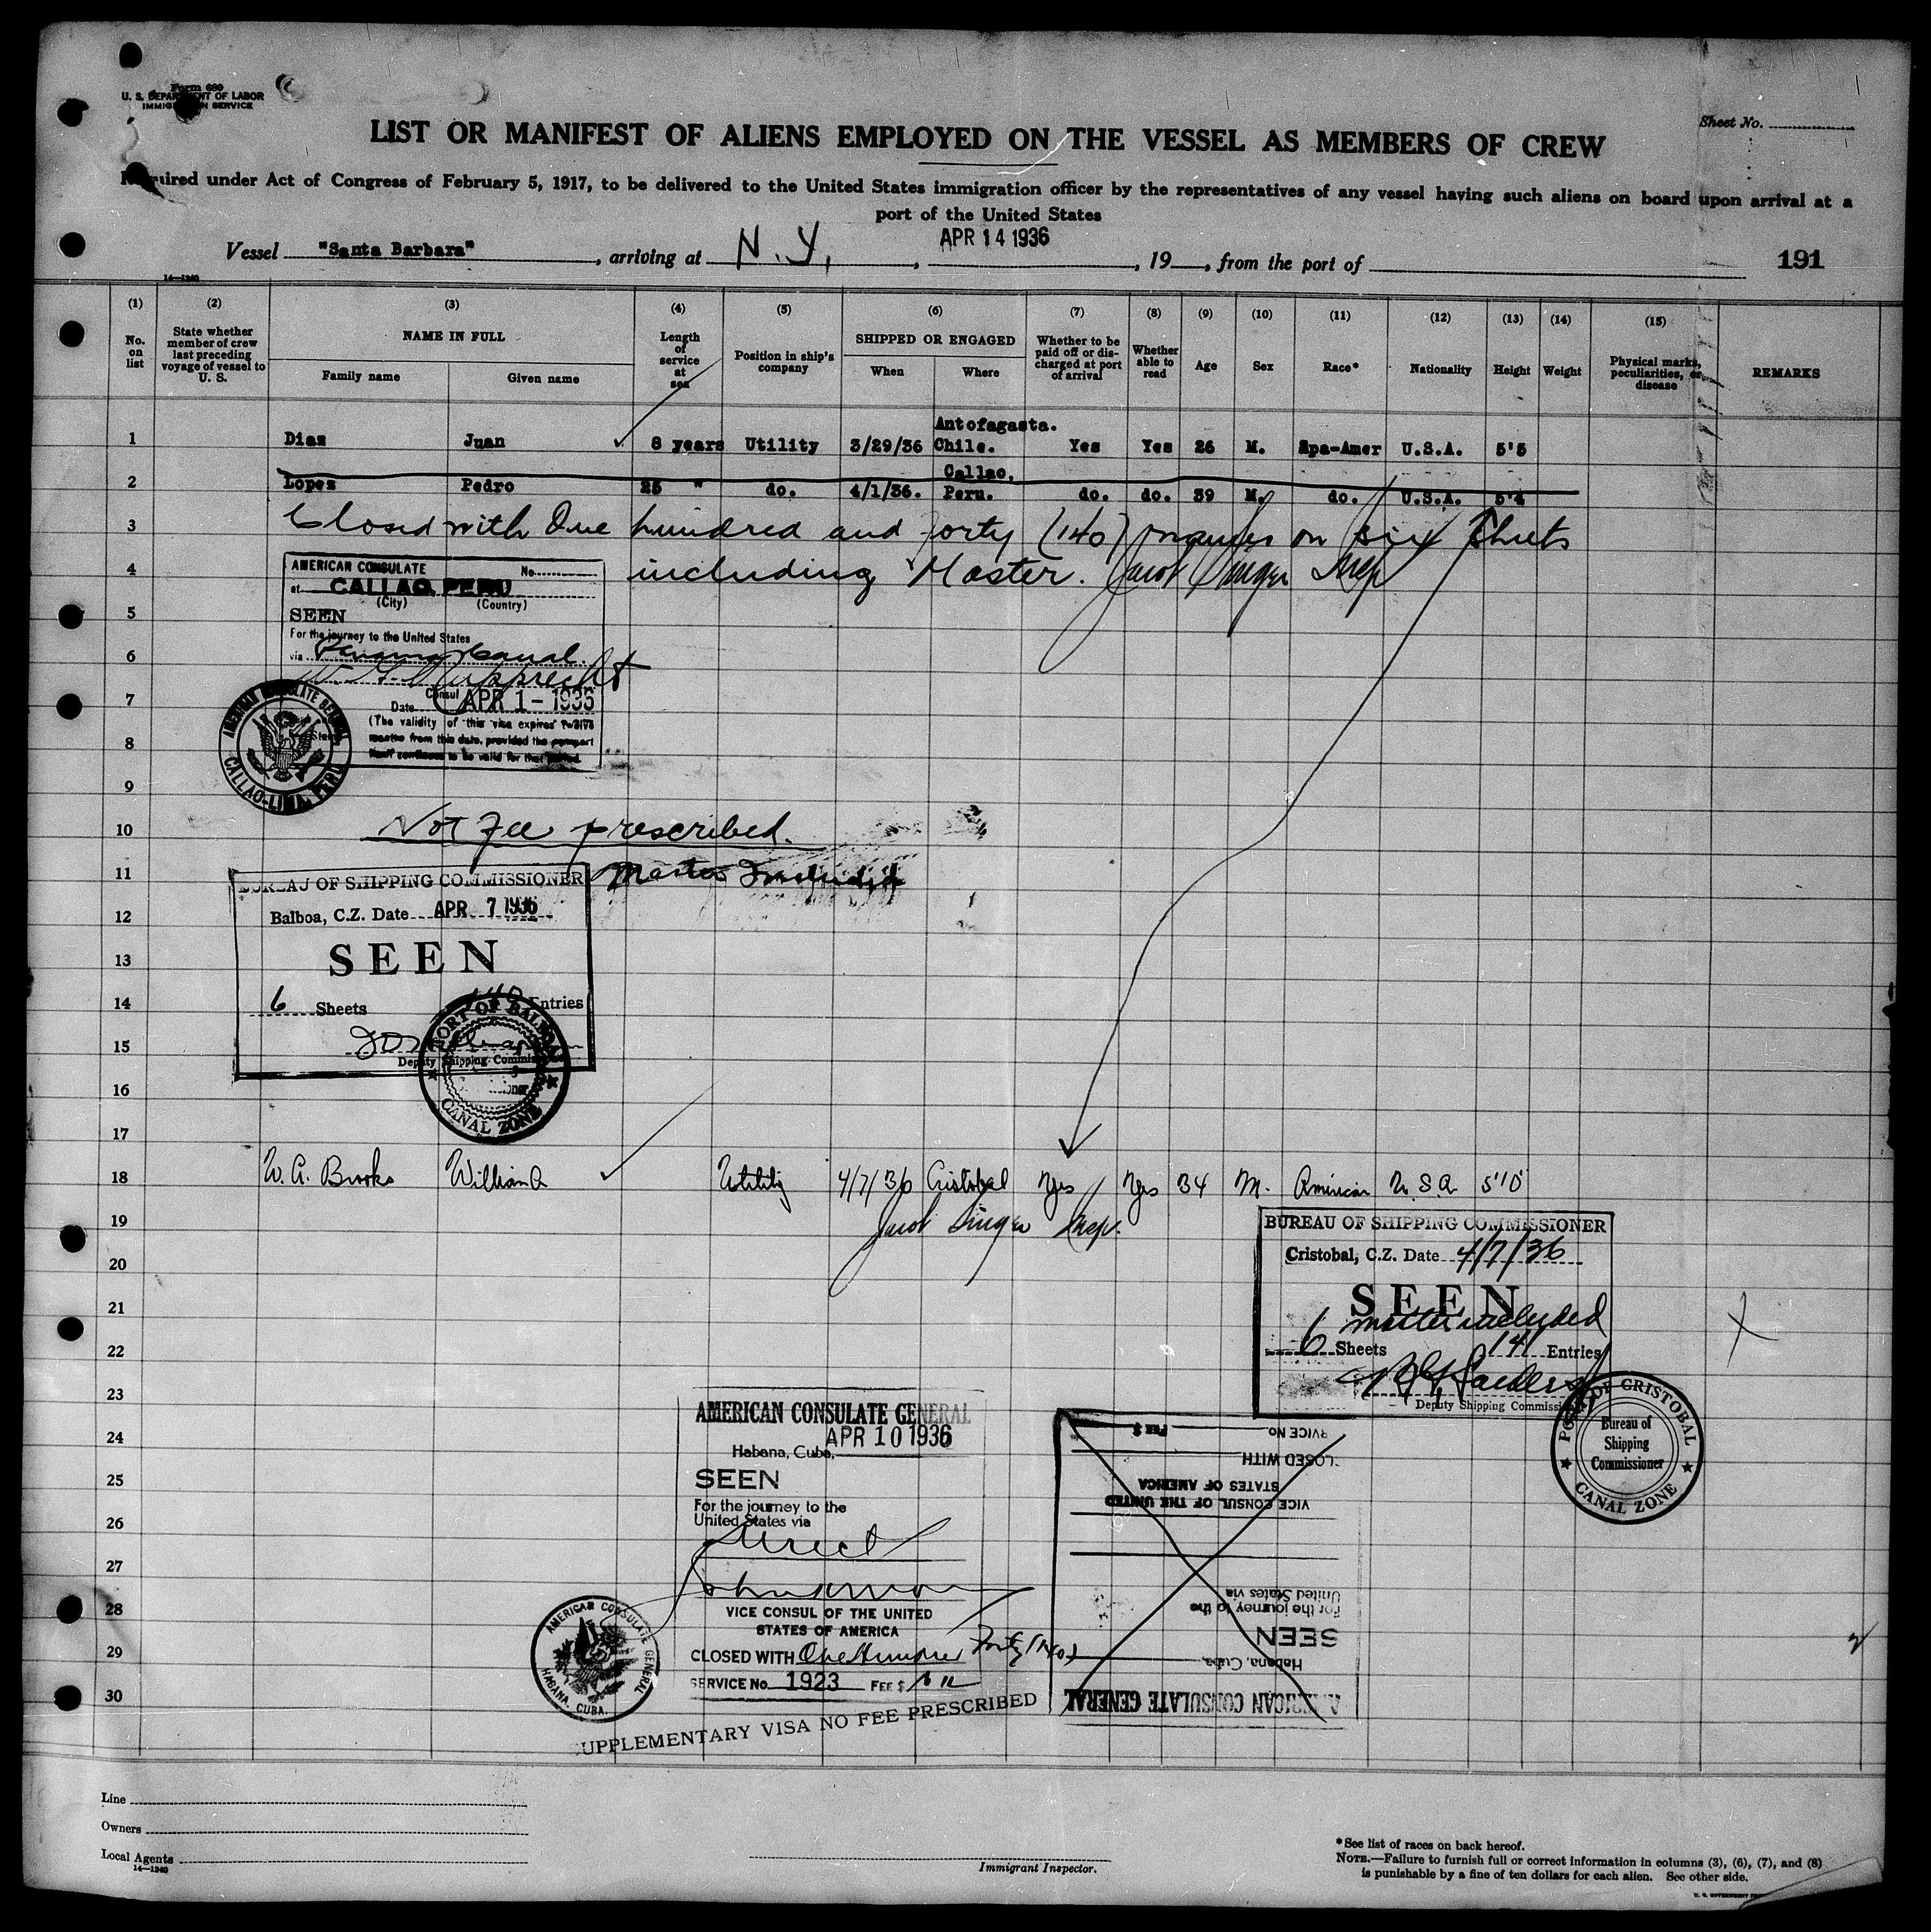 Form 680
U. S. DEPARTMENT OF LABOR
IMMIGRATION SERVICE
Sheet No.
LIST OR MANIFEST OF ALIENS EMPLOYED ON THE VESSEL AS MEMBERS OF CREW
Required under Act of Congress of February 5, 1917, to be delivered to the United States immigration officer by the representatives of any vessel having such aliens on board upon arrival at a
port of the United States
Vessel "Santa Barbara", arriving at N.Y., APR 14 1936, 19 , from the port of 191
14—1240
(1) (2) (3) (4) (5) (6) (7) (8) (9) (10) (11) (12) (13) (14) (15)
No. on list State whether member of crew last preceding voyage of vessel to U. S. NAME IN FULL Family name Given name Length of service at sea Position in ship's company SHIPPED OR ENGAGED When Where Whether to be paid off or discharged at port of arrival Whether able to read Age Sex Race* Nationality Height Weight Physical marks, peculiarities, or disease REMARKS
1 Dias Juan 8 years Utility 3/29/36 Antofagasta. Chile. Yes Yes 26 M. Spa-Amer U.S.A. 5'5
2 Lopez Pedro 25 " do. 4/1/36. Callao, Peru. do. do. 39 M. do. U.S.A. 5'4
3 Closed with One hundred and forty (140) on six Sheets
4 including Master. Jacob Singer Insp
AMERICAN CONSULATE No.
at CALLAO, PERU
(City) (Country)
5
SEEN
For the journey to the United States
6
via Panama Canal.
W. G. Rupprecht
Consul
7
Date APR 1 - 1936
(The validity of this visa expires
months from this date, provided the passport
8
continues to be valid for that period.
AMERICAN CONSULATE GENERAL
CALLAO-LIMA, PERU
9
10 Not Fee prescribed.
11 Master Included
BUREAU OF SHIPPING COMMISSIONER
12
Balboa, C.Z. Date APR 7 1936
13
SEEN
14
6 Sheets 140 Entries
15
Deputy Shipping Commissioner
PORT OF BALBOA
CANAL ZONE
16
17
18 W. A. Brooks William A Utility 4/7/36 Cristobal Yes Yes 34 M. American U.S.A. 5'10"
19 Jacob Singer Insp.
20
BUREAU OF SHIPPING COMMISSIONER
Cristobal, C.Z. Date 4/7/36
21
SEEN
master included
22
6 Sheets 141 Entries
Deputy Shipping Commissioner
23
PORT OF CRISTOBAL
Bureau of
Shipping
Commissioner
CANAL ZONE
AMERICAN CONSULATE GENERAL
24
APR 10 1936
Habana, Cuba,
25
SEEN
For the journey to the
United States via
26
direct
27
28
VICE CONSUL OF THE UNITED
STATES OF AMERICA
29
CLOSED WITH One Hundred Forty (140)
SERVICE No. 1923 FEE $
30
SUPPLEMENTARY VISA NO FEE PRESCRIBED
AMERICAN CONSULATE GENERAL
HABANA, CUBA.
AMERICAN CONSULATE GENERAL
Habana, Cuba,
SEEN
For the journey to the
United States via
VICE CONSUL OF THE UNITED
STATES OF AMERICA
CLOSED WITH
SERVICE No. FEE $
Line
Owners
Local Agents
14—1240
Immigrant Inspector.
*See list of races on back hereof.
NOTE.—Failure to furnish full or correct information in columns (3), (6), (7), and (8)
is punishable by a fine of ten dollars for each alien. See other side.